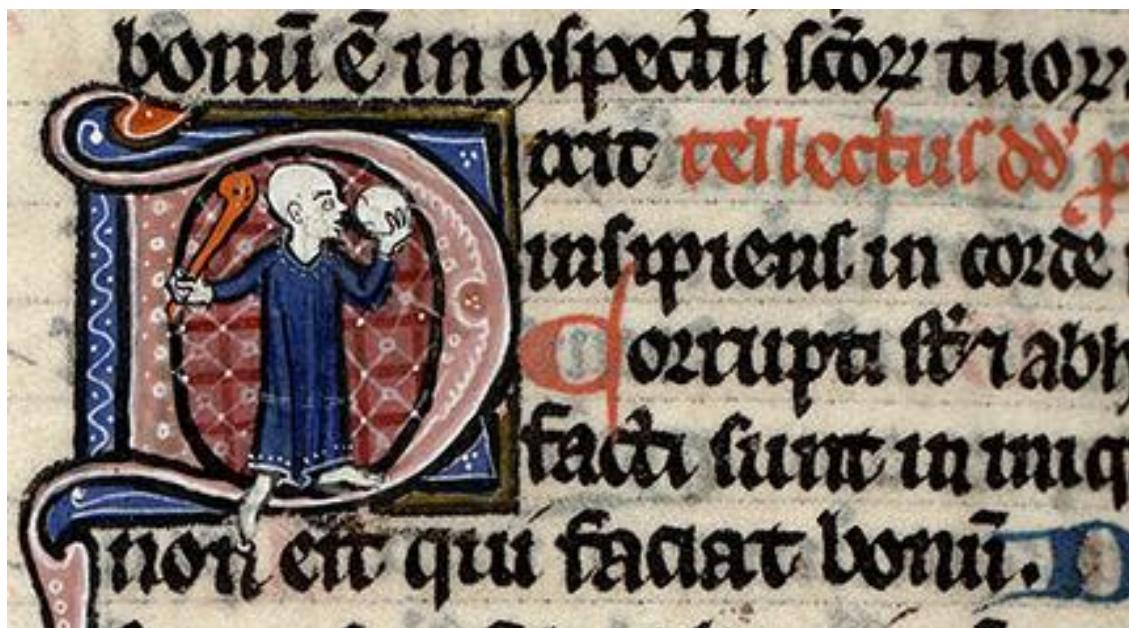 bonū ē in ꝯspectu sc̄oꝝ tuoꝝ.
Dixit tellectus dd̄ p
insipiens in corde
Corrupti st̄ ⁊ abh
facti sunt in iniq
non est qui faciat bonū. D